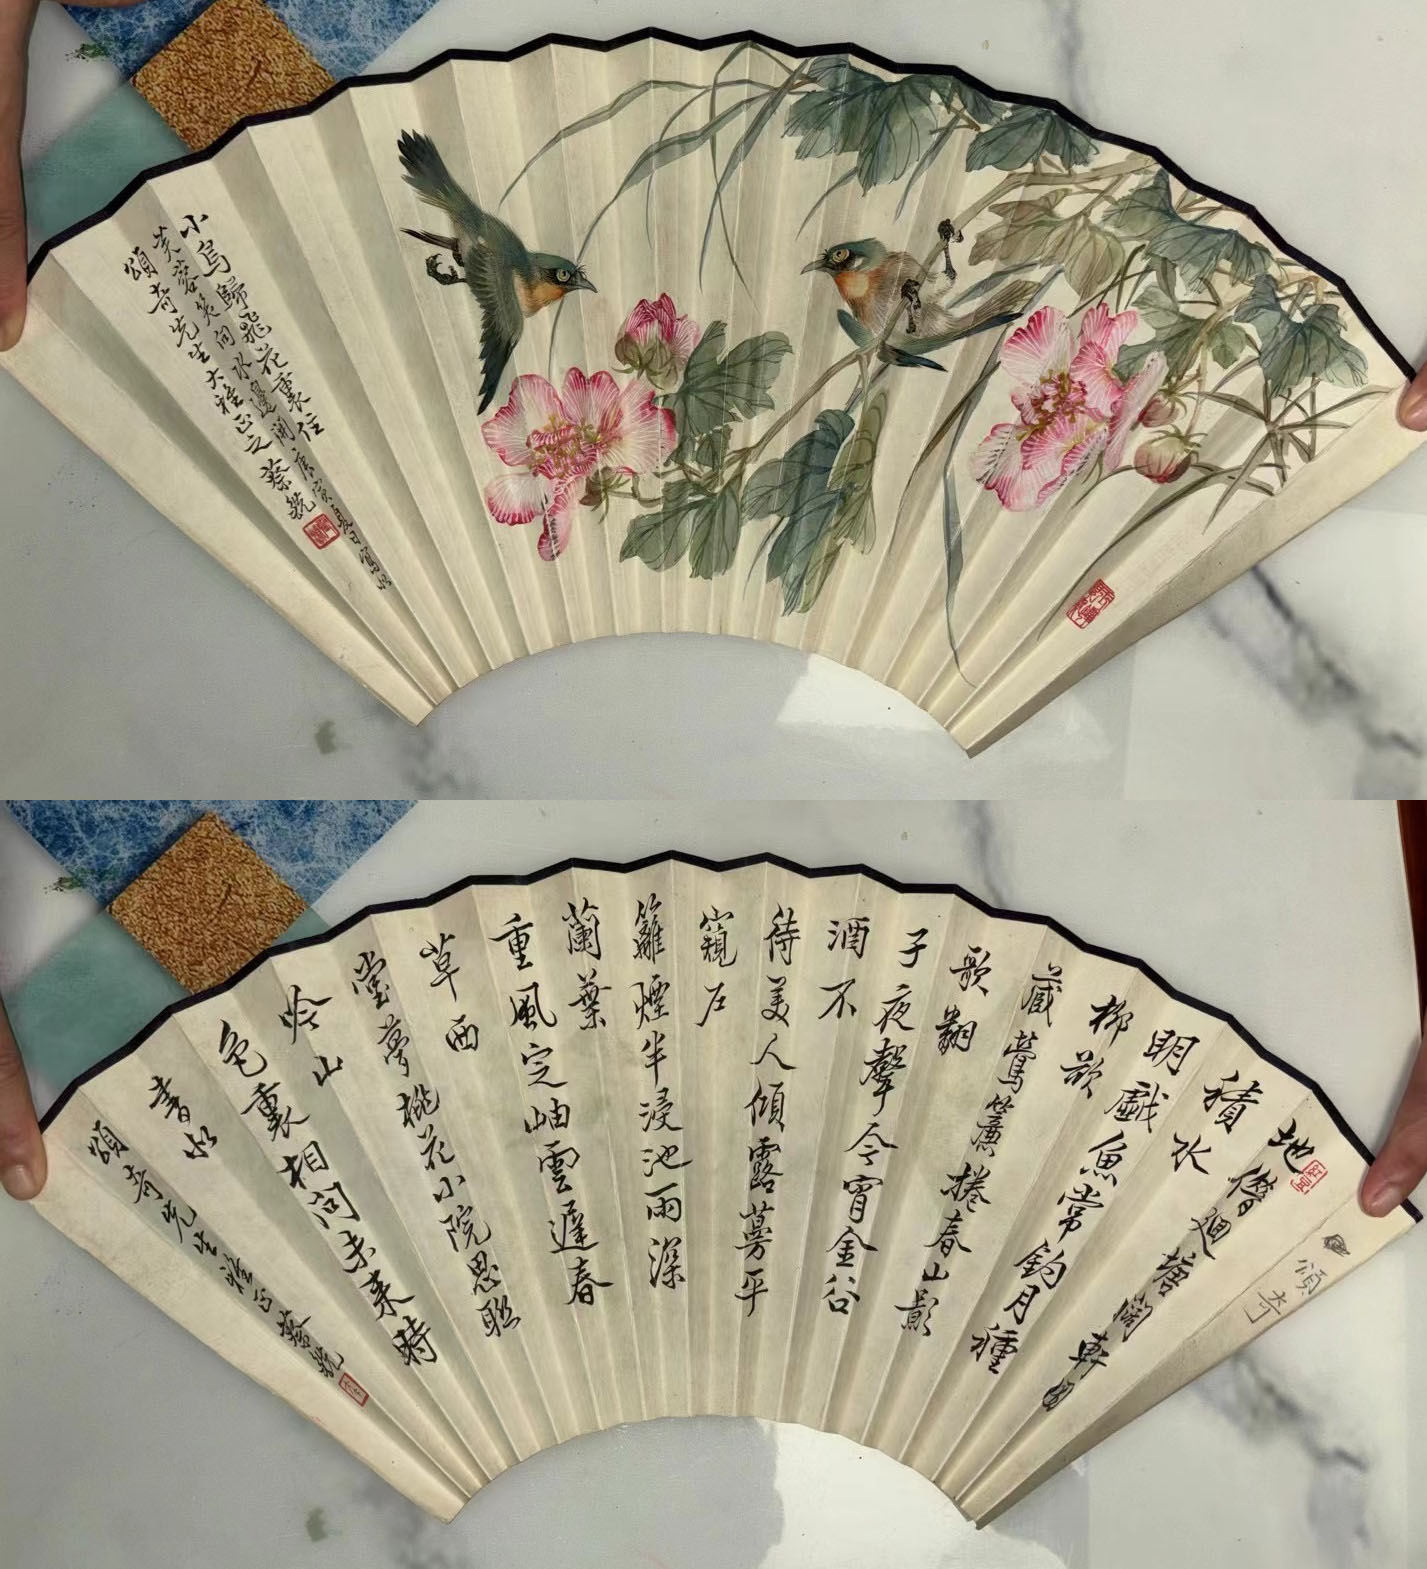 小鳥歸飛花裏住
芙蓉笑向水邊開 庚寅夏日寫以
頌奇先生大雅正之 蔡銑
地僻迴塘闊軒
積水
明戲魚常鈎月穜
柳歆
藏鶯簾捲春山影
歌翻
子夜聲今宵金谷
酒不
待美人傾露蔓平
窺戶
籬煙半浸池雨深
蘭葉
重風定岫雲遲春
草西
堂夢桃花小院思
吟山
色裏相問未来時
書以
頌奇先生 蔡銑
頌奇